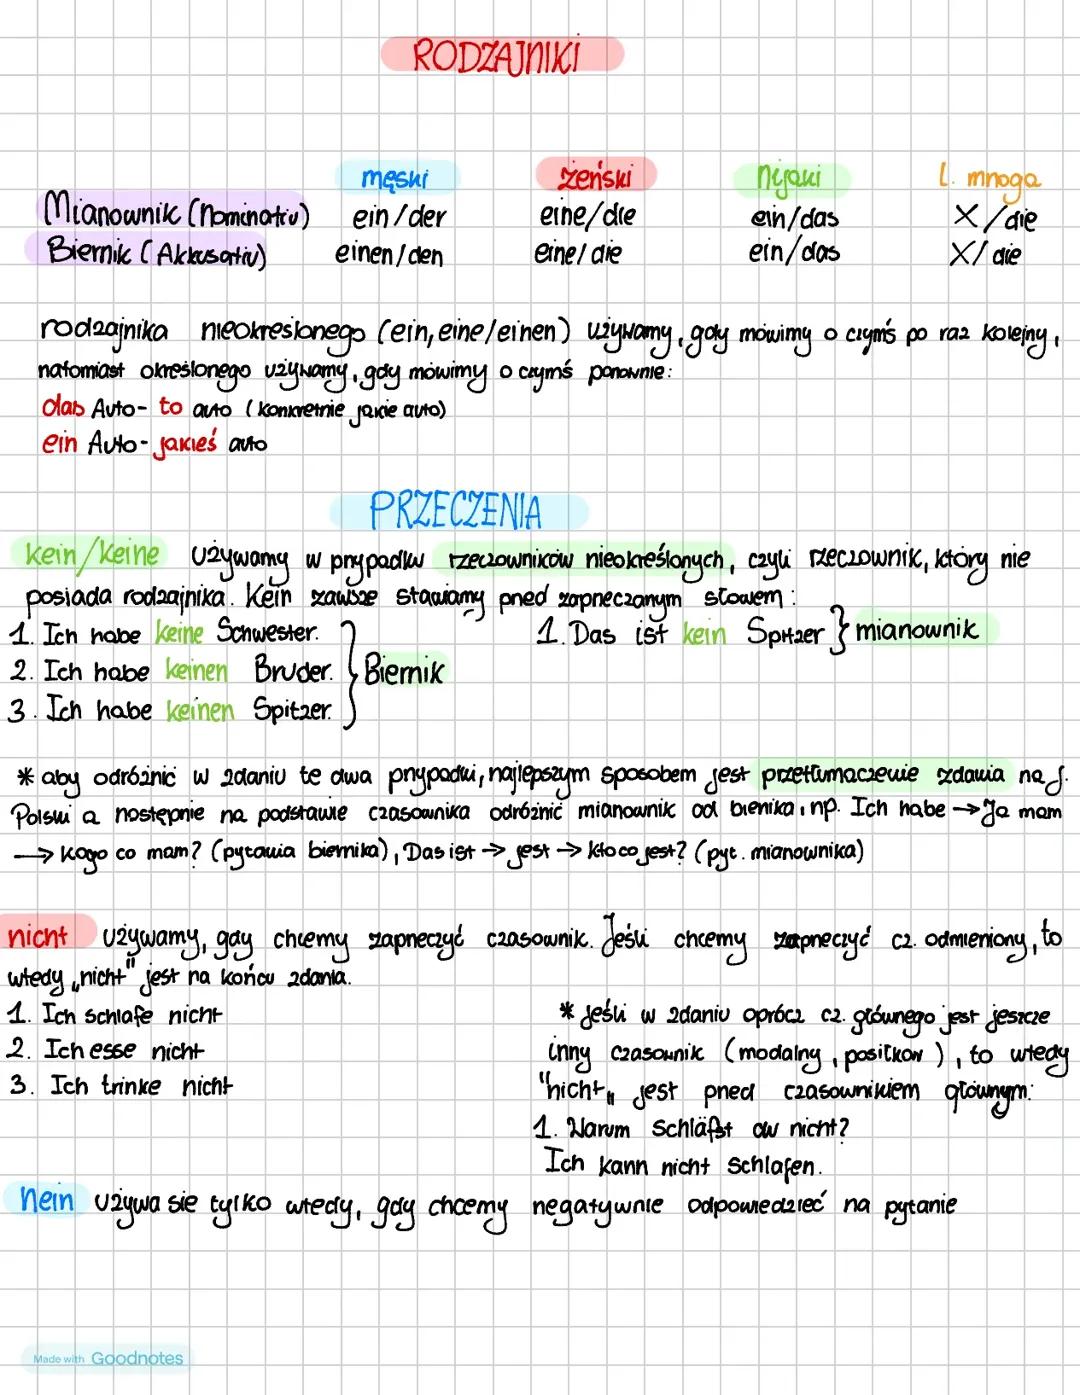 RODZAJNIKI
męski żeński nijaki l. mnoga
Mianownik (Nominativ) ein/der eine/die ein/das X/die
Biernik (Akkusativ) einen/den eine/die ein/das X/die
rodzajnika nieokreślonego (ein, eine/einen) używamy, gdy mówimy o czymś po raz kolejny,
natomiast określonego używamy, gdy mówimy o czymś ponownie:
das Auto - to auto (konkretnie jakie auto)
ein Auto - jakieś auto
PRZECZENIA
kein/keine używamy w przypadku rzeczowników nieokreślonych, czyli rzeczownik, który nie
posiada rodzajnika. Kein zawsze stawiamy przed zaprzeczanym słowem:
1. Ich habe keine Schwester. 1. Das ist kein Spitzer } mianownik
2. Ich habe keinen Bruder. } Biernik
3. Ich habe keinen Spitzer.
* aby odróżnić w zdaniu te dwa przypadki, najlepszym sposobem jest przetłumaczenie zdania na j.
Polski a następnie na podstawie czasownika odróżnić mianownik od biernika, np. Ich habe → Ja mam
→ Kogo co mam? (pytania biernika), Das ist → jest → kto co jest? (pyt. mianownika)
nicht używamy, gdy chcemy zaprzeczyć czasownik. Jeśli chcemy zaprzeczyć cz. odmieniony, to
wtedy „nicht" jest na końcu zdania.
1. Ich schlafe nicht
2. Ich esse nicht
3. Ich trinke nicht
* jeśli w zdaniu oprócz cz. głównego jest jeszcze
inny czasownik (modalny, posiłkow), to wtedy
"nicht„ jest przed czasownikiem głównym:
1. Warum Schläfst du nicht?
Ich kann nicht schlafen.
Nein używa sie tylko wtedy, gdy chcemy negatywnie odpowiedzieć na pytanie
Made with Goodnotes